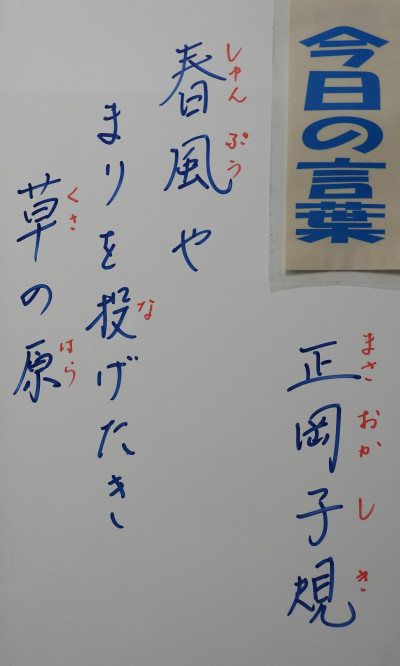 今日の言葉
正岡子規
まさおかしき
春風や
しゅんぷう
まりを投げたき
な
草の原
くさはら